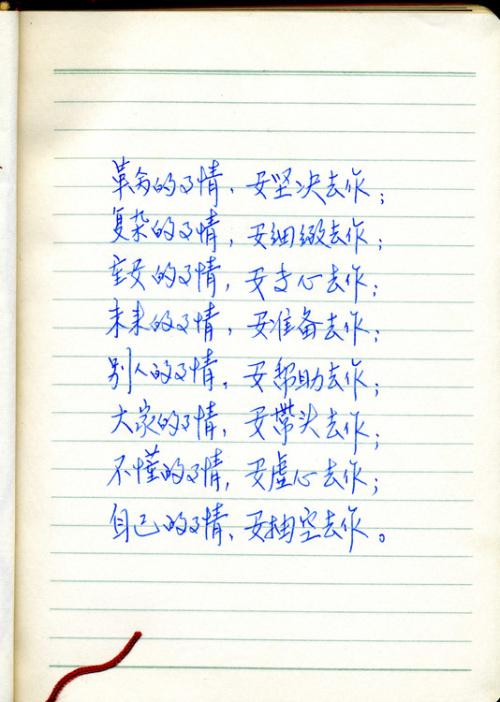 革命的事情，要坚决去作；
复杂的事情，要细致去作；
重要的事情，要专心去作；
未来的事情，要准备去作；
别人的事情，要帮助去作；
大家的事情，要带头去作；
不懂的事情，要虚心去作；
自己的事情，要抽空去作。